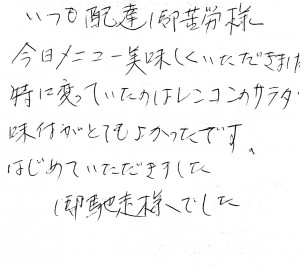 いつも配達御苦労様
今日メニュー美味しくいただきました
特に変っていたのはレンコンのサラダ
味付がとてもよかったです。
はじめていただきました
御馳走様でした